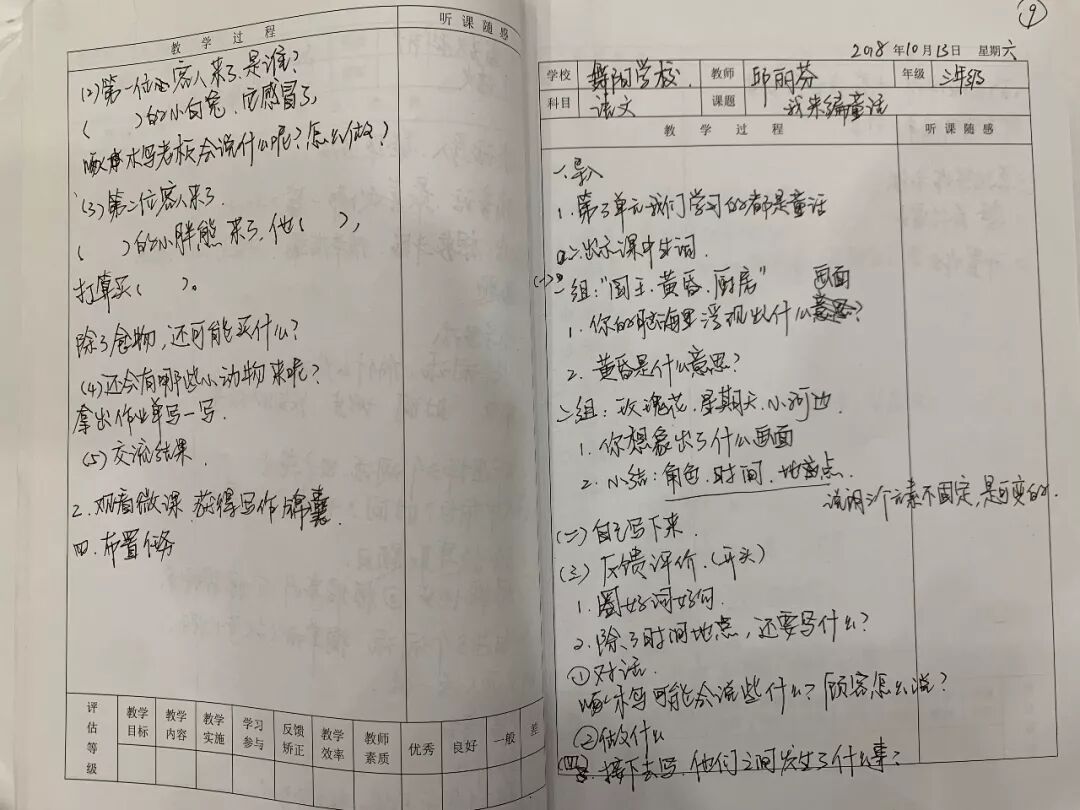 教学过程 听课随感
(2)第一位客人来了,是谁?
( )的小白兔,它感冒了,
啄木鸟老板会说什么呢?怎么做?
(3)第二位客人来了.
( )的小胖熊来了,他( ),
打算买( )。
除了食物,还可能买什么?
(4)还会有哪些小动物来呢?
拿出作业单写一写.
(5)交流结果.
2.观看微课,获得写作锦囊.
四.布置任务
评估等级 教学目标 教学内容 教学实施 学习参与 反馈矫正 教学效率 教师素质 优秀 良好 一般 差
9
2018年10月13日 星期六
学校 舞阳学校. 教师 邱丽芬 年级 三年级
科目 语文 课题 我来编童话
教学过程 听课随感
一.导入
1.第3单元我们学习的都是童话
二.出示课中生词.
(一)一组:"国王.黄昏.厨房" 画面
1.你的脑海里浮现出什么?
2.黄昏是什么意思?
二组:玫瑰花.星期天.小河边.
1.你想象出了什么画面
2.小结:角色.时间.地点.
说明三个元素不固定,是可变的.
(二)自己写下来.
(三)反馈评价.(开头)
1.圈好词好句.
2.除了时间地点,还要写什么?
①对话.
啄木鸟可能会说些什么?顾客怎么说?
②做什么
(四)接下去写.他们之间发生了什么事?